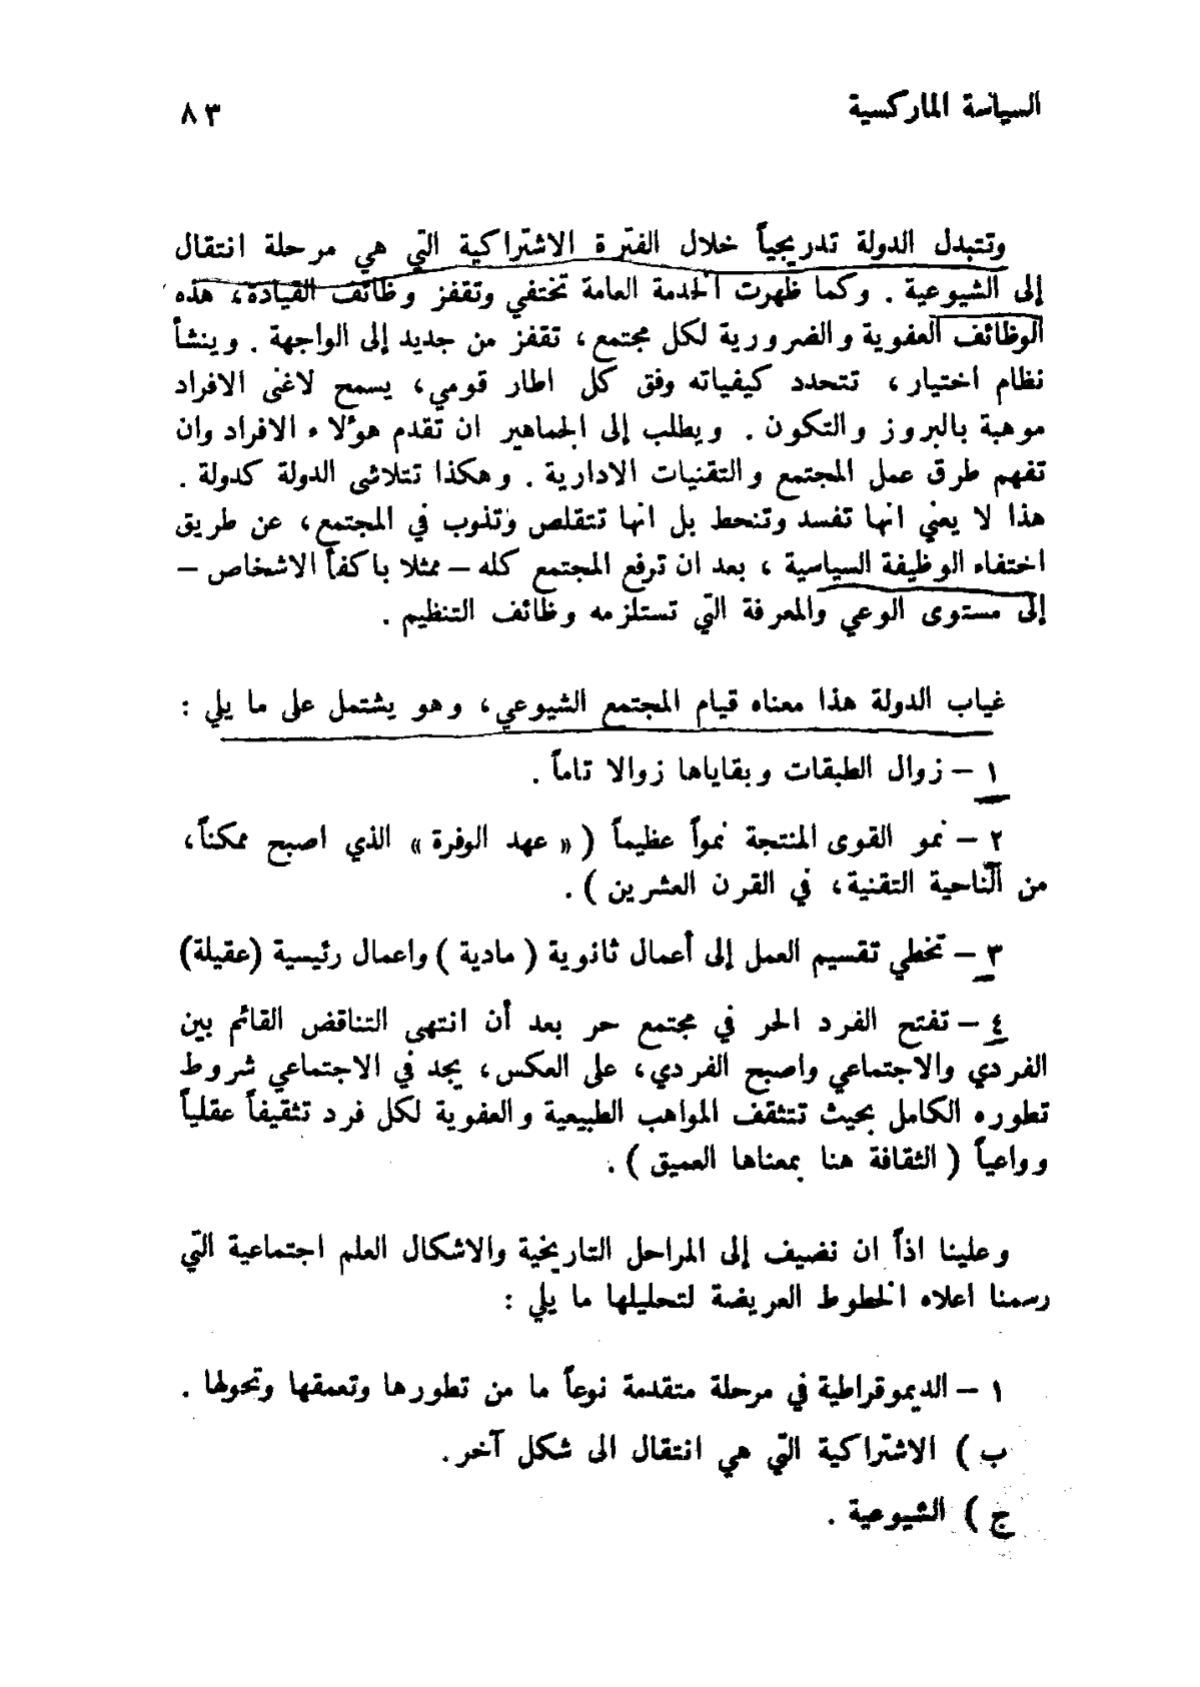 السياسة الماركسية
٨٣
وتتبدل الدولة تدريجياً خلال الفترة الاشتراكية التي هي مرحلة انتقال
إلى الشيوعية . وكما ظهرت الخدمة العامة تختفي وتقفز وظائف القيادة، هذه
الوظائف العفوية والضرورية لكل مجتمع، تقفز من جديد إلى الواجهة . وينشأ
نظام اختيار، تتحدد كيفياته وفق كل اطار قومي، يسمح لاغنى الافراد
موهبة بالبروز والتكون . ويطلب إلى الجماهير ان تقدم هؤلاء الافراد وان
تفهم طرق عمل المجتمع والتقنيات الادارية . وهكذا تتلاشى الدولة كدولة .
هذا لا يعني انها تفسد وتنحط بل انها تتقلص وتذوب في المجتمع، عن طريق
اختفاء الوظيفة السياسية ، بعد ان ترفع المجتمع كله – ممثلا باكفأ الاشخاص –
إلى مستوى الوعي والمعرفة التي تستلزمه وظائف التنظيم .
غياب الدولة هذا معناه قيام المجتمع الشيوعي، وهو يشتمل على ما يلي :
١ – زوال الطبقات وبقاياها زوالا تاماً .
٢ – نمو القوى المنتجة نمواً عظيماً ( « عهد الوفرة » الذي اصبح ممكناً،
من الناحية التقنية، في القرن العشرين ) .
٣ – تخطي تقسيم العمل إلى أعمال ثانوية ( مادية ) واعمال رئيسية (عقيلة)
٤ – تفتح الفرد الحر في مجتمع حر بعد أن انتهى التناقض القائم بين
الفردي والاجتماعي واصبح الفردي، على العكس، يجد في الاجتماعي شروط
تطوره الكامل بحيث تتثقف المواهب الطبيعية والعفوية لكل فرد تثقيفاً عقلياً
وواعياً ( الثقافة هنا بمعناها العميق ) .
وعلينا اذاً ان نضيف إلى المراحل التاريخية والاشكال العلم اجتماعية التي
رسمنا اعلاه الخطوط العريضة لتحليلها ما يلي :
١ – الديموقراطية في مرحلة متقدمة نوعاً ما من تطورها وتعمقها وتحولها .
ب ) الاشتراكية التي هي انتقال الى شكل آخر .
ج ) الشيوعية .